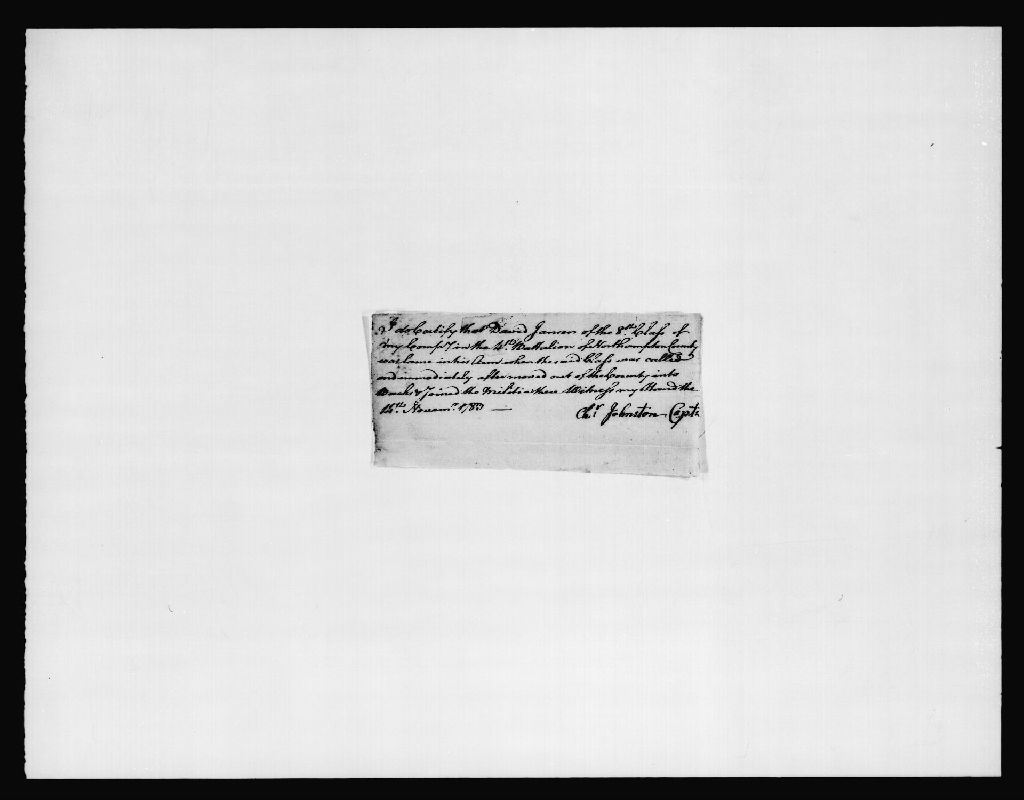 I do Certify that David James of the 8th Class of
my Compy in the 4th Battalion of Northampton County
was lame in his Arm when the said Class was called
and immediately after moved out of the County into
Bucks & Joined the Militia there Witness my Hand the
1783 — Johnston Capt.